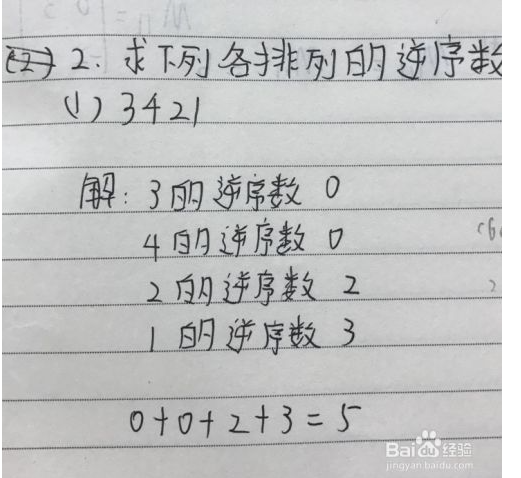 2. 求下列各排列的逆序数
(1) 3421
解: 3的逆序数 0
4的逆序数 0
2的逆序数 2
1的逆序数 3
0+0+2+3=5
Baidu经验
jingyan.baidu.com